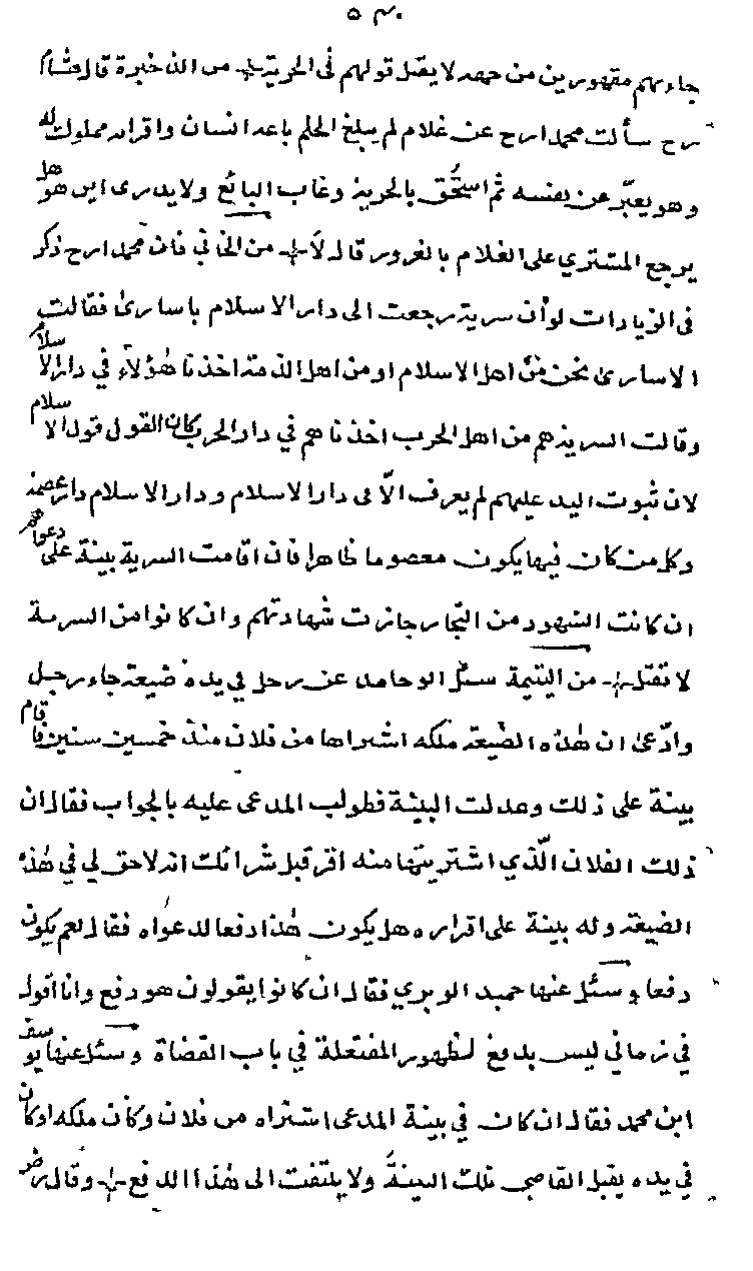 جاء بهم مقهورين من جهة لا يقبل قولهم فى الحرية من الذخيرة قال هشام
رح سألت محمدا رح عن غلام لم يبلغ الحلم باعه انسان واقرانه مملوك له
وهو يعبّر عن نفسه ثم استُحق بالحرية وغاب البائع ولا يدرى اين هو هل
يرجع المشتري على الغلام بالغرور قال لا من الخاني فان محمدا رح ذكر
فى الزيادات لو أن سرية رجعت الى دار الاسلام باسارىٰ فقالت
الاسارىٰ نحن من اهل الاسلام او من اهل الذمة اخذنا هٰؤلاء في دار الاسلام
وقالت السرية هم من اهل الحرب اخذناهم في دار الحرب كان القول قول الاسلام
لان ثبوت اليد عليهم لم يعرف الّا فى دار الاسلام ودار الاسلام دار عصمة
وكل من كان فيها يكون معصوما ظاهرا فان اقامت السرية بينة على دعواهم
ان كانت الشهود من التجار جازت شهادتهم وان كانوا من السرية
لا تقبل من اليتيمة سئل ابو حامد عن رجل في يده ضيعة جاء رجل
وادّعىٰ ان هٰذه الضيعة ملكه اشتراها من فلان منذ خمسين سنين فاقام
بينة على ذلك وعدلت البينة فطولب المدعى عليه بالجواب فقال ان
ذلك الفلان الّذي اشتريتها منه اقر قبل شرائك انه لا حق لي في هٰذه
الضيعة وله بينة على اقراره هل يكون هٰذا دفعا لدعواه فقال نعم يكون
دفعا وسئل عنها حميد الوبري فقال ان كانوا يقولون هو دفع وانا اقول
في زماني ليس بدفع لظهور المفتعلة في باب القضاة وسئل عنها يوسف
ابن محمد فقال ان كان في بينة المدعى اشتراه من فلان وكان ملكه او كان
في يده يقبل القاضى تلك البينة ولا يلتفت الى هٰذا الدفع وقال رضى